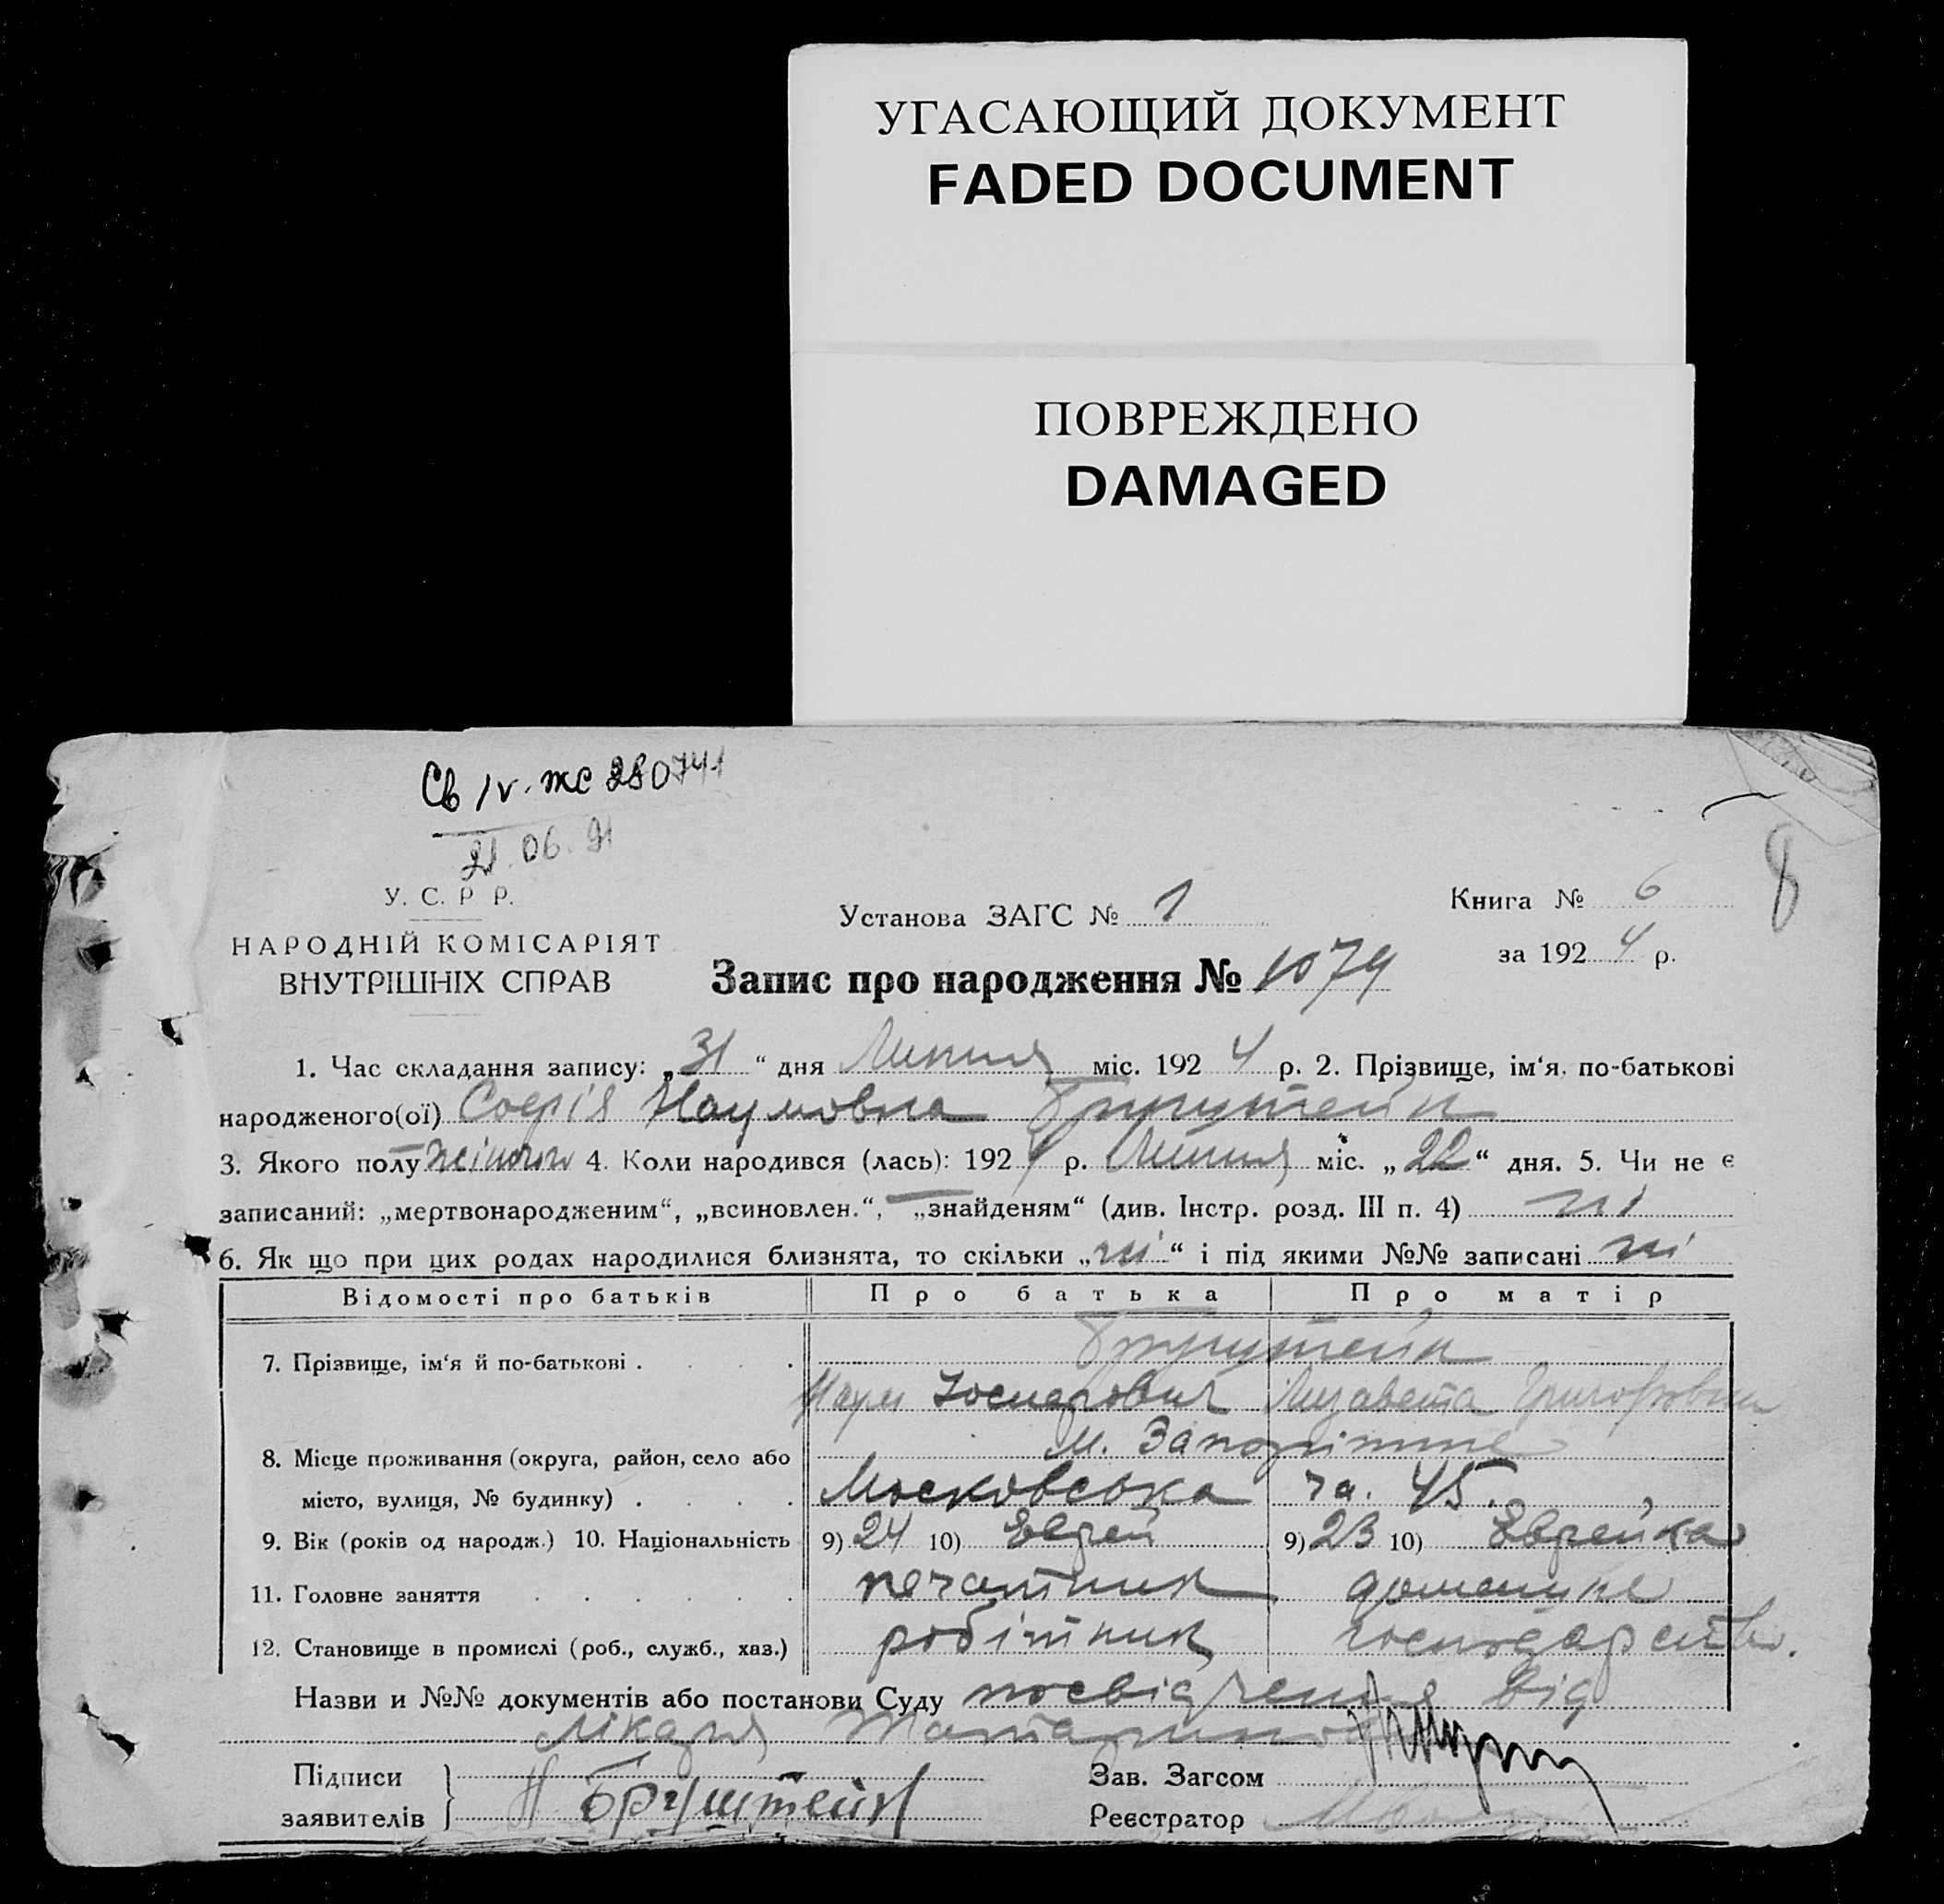 УГАСАЮЩИЙ ДОКУМЕНТ
FADED DOCUMENT
ПОВРЕЖДЕНО
DAMAGED
Св IV-жс 280741
21.06.91
8
У. С. Р Р.
НАРОДНІЙ КОМІСАРІЯТ
ВНУТРІШНІХ СПРАВ
Установа ЗАГС № 1
Книга № 6
за 1924 р.
Запис про народження № 1079
1. Час складання запису: „31“ дня Липня міс. 1924 р. 2. Прізвище, ім‘я, по-батькові
народженого(ої) Софія Наумовна Бруштейн
3. Якого полу жіночої 4. Коли народився (лась): 1924 р. Липня міс. „22“ дня. 5. Чи не є
записаний: „мертвонародженим“, „всиновлен.“, „знайденям“ (див. Інстр. розд. III п. 4) ні
6. Як що при цих родах народилися близнята, то скільки „ні“ і під якими №№ записані ні
Відомості про батьків Про батька Про матір
7. Прізвище, ім‘я й по-батькові . . . . Бруштейн
Наум Иосифович Лизавета Григоровна
м. Запоріжже
8. Місце проживання (округа, район, село або
місто, вулиця, № будинку) . . . . Московська ча. 45.
9. Вік (років од народж.) 10. Національність 9) 24 10) Еврей 9) 23 10) Еврейка
11. Головне заняття . . . . . . печатник домашнє
12. Становище в промислі (роб., служб., хаз.) робітник господарство.
Назви и №№ документів або постанови Суду посвідчення від
лікаря
Підписи
заявителів
Н Бруштейн
Зав. Загсом
Реєстратор